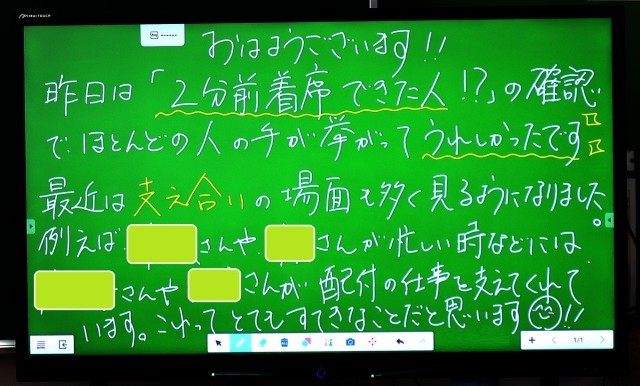 おはようございます!!
昨日は「2分前着席できた人!?」の確認
でほとんどの人の手が挙がってうれしかったです
最近は支え合いの場面も多く見るようになりました。
例えば さんや さんが忙しい時などには
さんや さんが配付の仕事を支えてくれて
います。これってとてもすてきなことだと思います!!
1/1